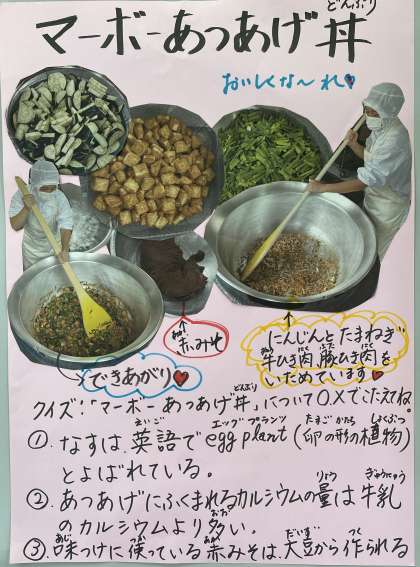 マーボーあつあげ丼
どんぶり
おいしくな〜れ♥
赤みそ
みそ
できあがり♥
にんじんとたまねぎ
牛ひき肉豚ひき肉を
いためています♥
クイズ!「マーボーあつあげ丼」について○×でこたえてね
①.なすは、英語でegg plant(卵の形の植物)
とよばれている。
②.あつあげにふくまれるカルシウムの量は牛乳
のカルシウムより多い。
③.味つけに使っている赤みそは、大豆から作られる